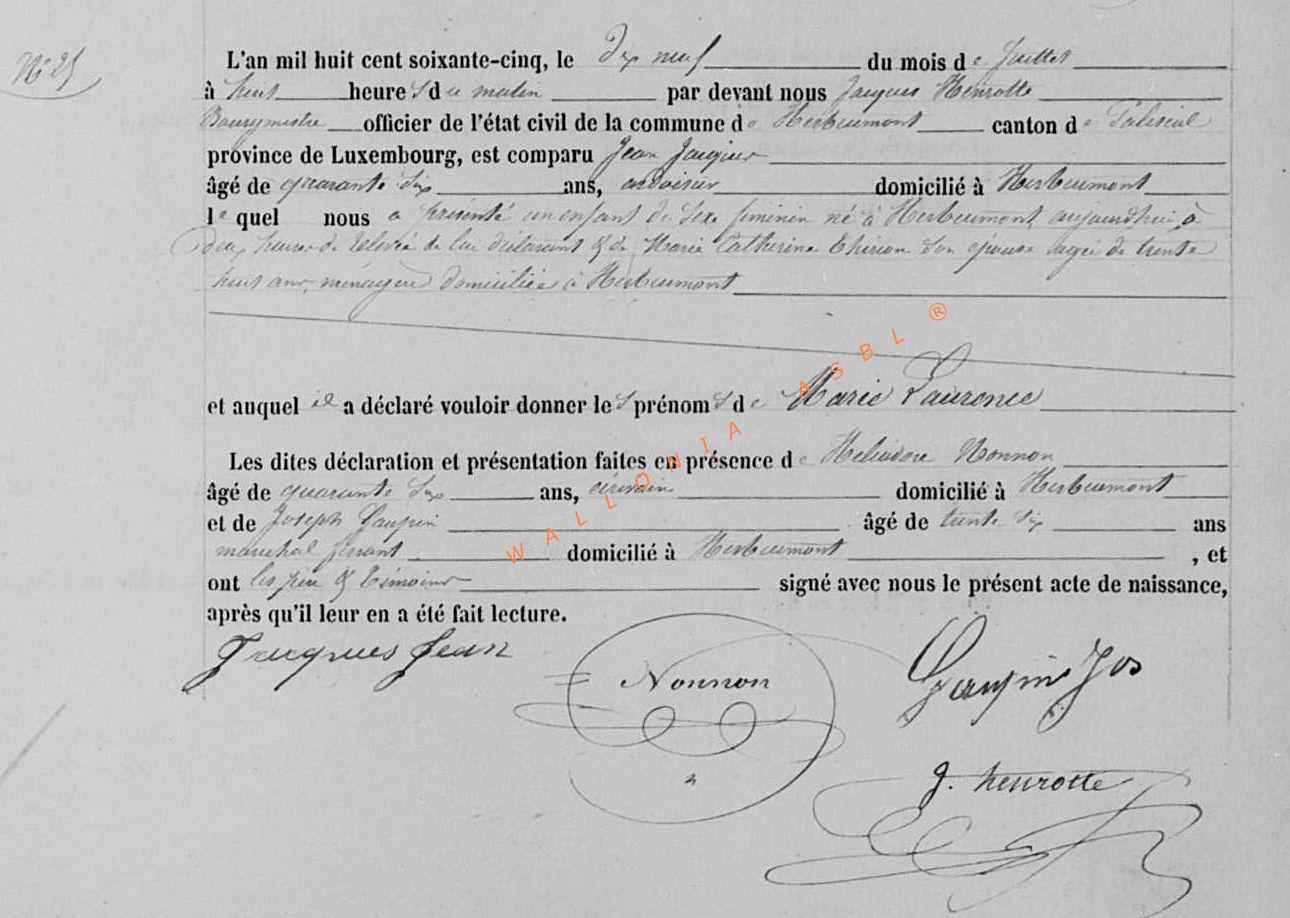 N° 25
L'an mil huit cent soixante-cinq, le dix neuf du mois de Juillet
à huit heures du matin par devant nous Jacques Henrotte
Bourgmestre officier de l'état civil de la commune de Herbeumont canton de Paliseul
province de Luxembourg, est comparu Jean Jacques
âgé de quarante six ans, ardoisier domicilié à Herbeumont
le quel nous a présenté un enfant de sexe féminin né à Herbeumont aujourd'hui à
deux heures de relevée de lui déclarant & de Marie Catherine Thirion son épouse agée de trente
huit ans, ménagère domiciliée à Herbeumont
et auquel il a déclaré vouloir donner les prénoms de Marie Laurence
Les dites déclaration et présentation faites en présence de Héliodore Nonnon
âgé de quarante six ans, écrivain domicilié à Herbeumont
et de Joseph Gaupin âgé de trente six ans
maréchal ferrant domicilié à Herbeumont , et
ont les père & témoins signé avec nous le présent acte de naissance,
après qu'il leur en a été fait lecture.
Jacques Jean
Nonnon
Gaupin Jos
J. henrotte
WALLONIA ASBL ®